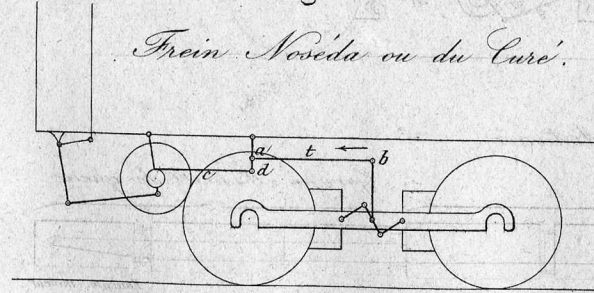 Frein Noséda ou du Curé.
a t b
c d